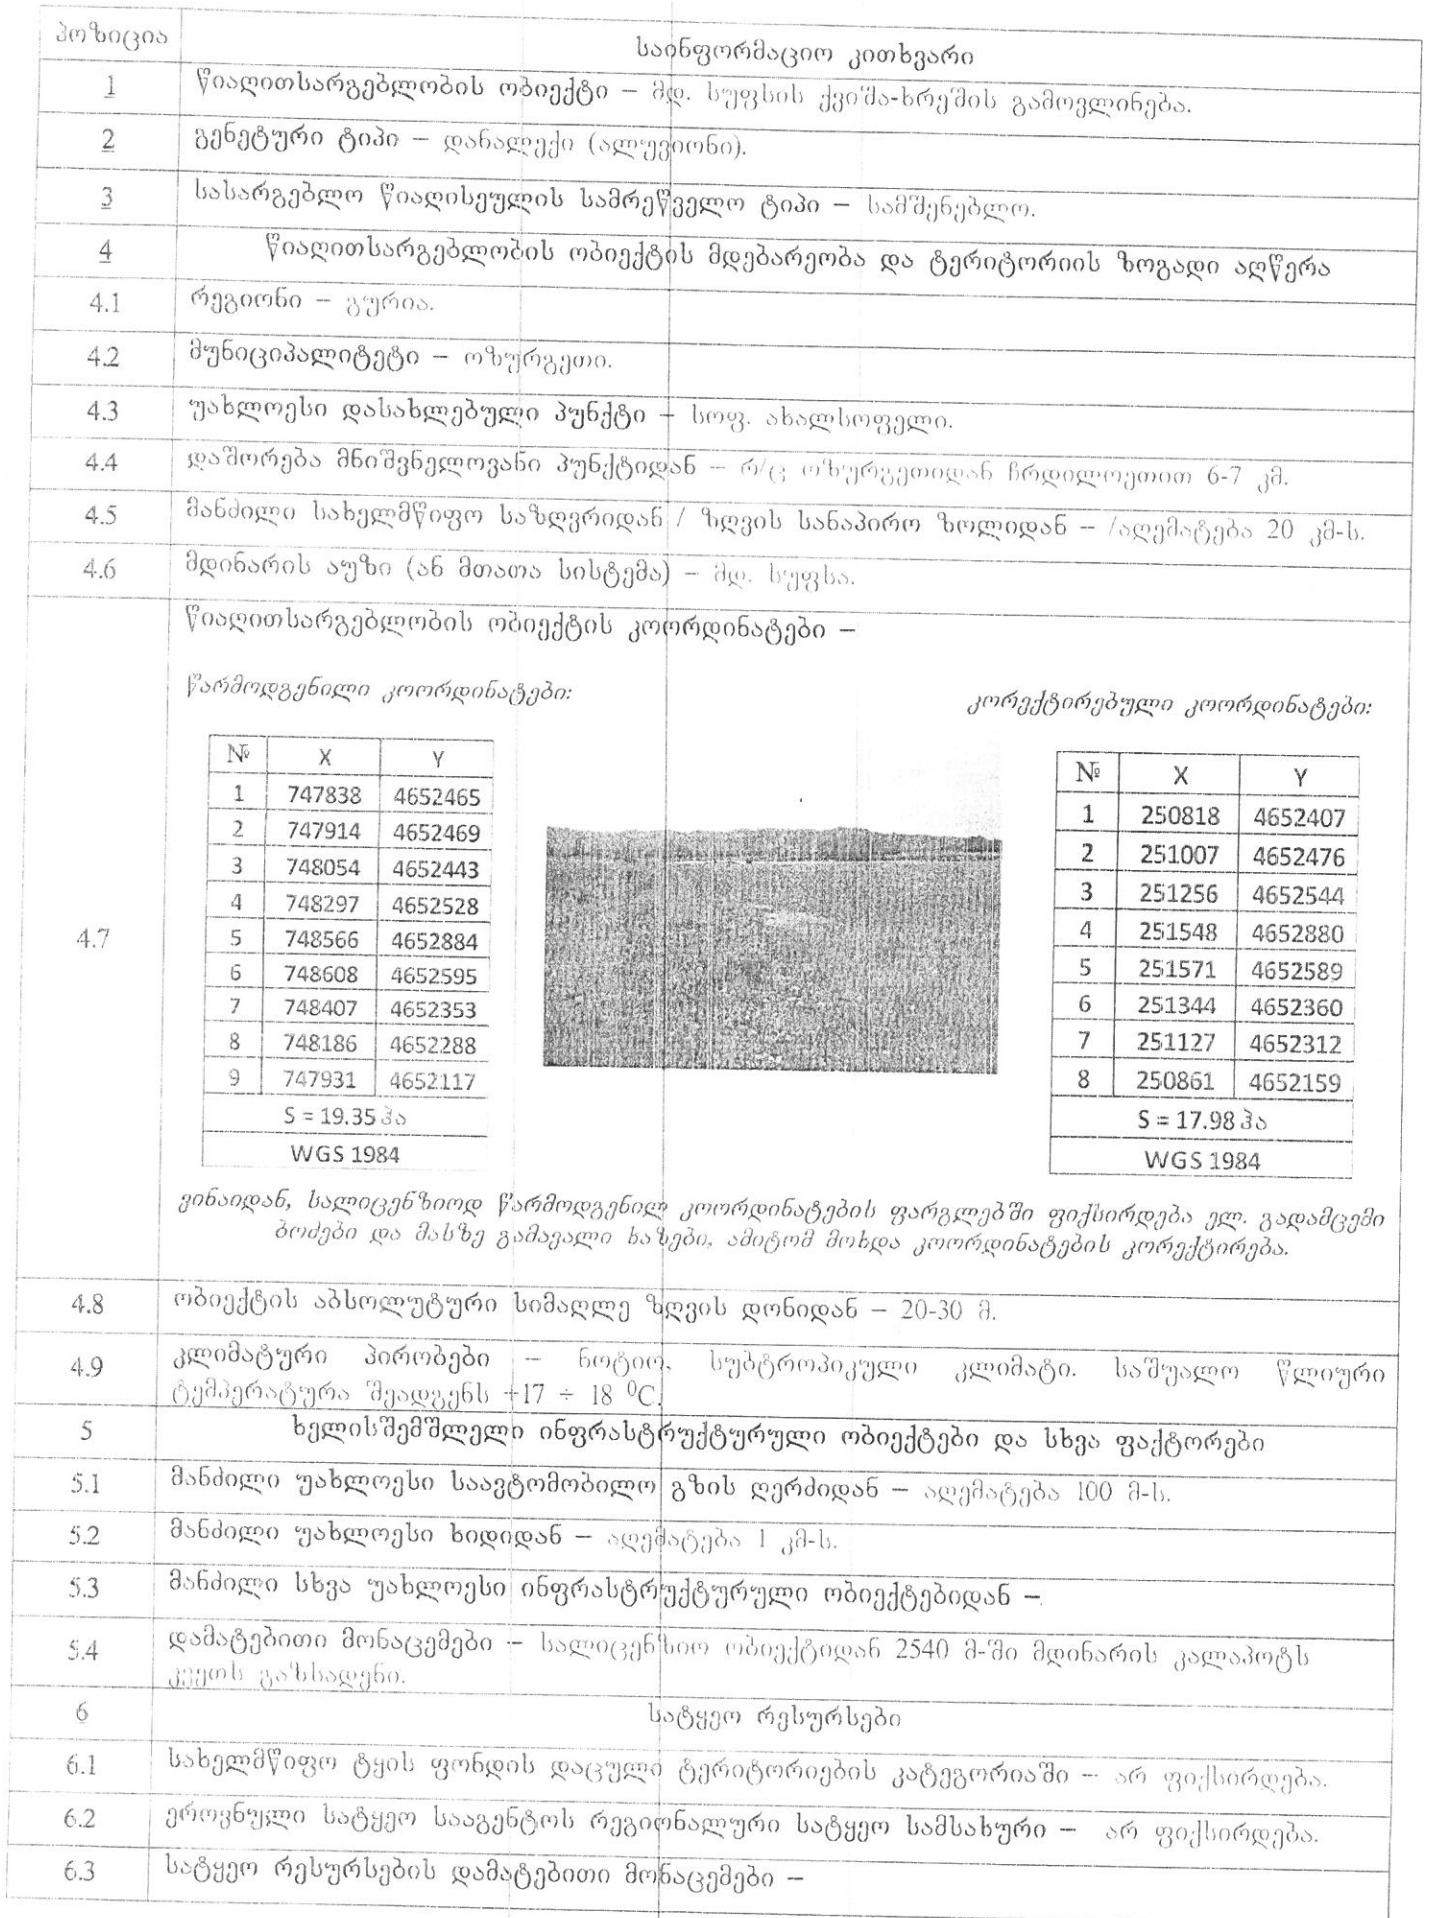 პოზიცია საინფორმაციო კითხვარი
1 წიაღითსარგებლობის ობიექტი – მდ. სუფსის ქვიშა-ხრეშის გამოვლინება.
2 გენეტური ტიპი – დანალექი (ალუვიონი).
3 სასარგებლო წიაღისეულის სამრეწველო ტიპი – სამშენებლო.
4 წიაღითსარგებლობის ობიექტის მდებარეობა და ტერიტორიის ზოგადი აღწერა
4.1 რეგიონი – გურია.
4.2 მუნიციპალიტეტი – ოზურგეთი.
4.3 უახლოესი დასახლებული პუნქტი – სოფ. ახალსოფელი.
4.4 დაშორება მნიშვნელოვანი პუნქტიდან – რ/ც ოზურგეთიდან ჩრდილოეთით 6-7 კმ.
4.5 მანძილი სახელმწიფო საზღვრიდან / ზღვის სანაპირო ზოლიდან – /აღემატება 20 კმ-ს.
4.6 მდინარის აუზი (ან მთათა სისტემა) – მდ. სუფსა.
4.7 წიაღითსარგებლობის ობიექტის კოორდინატები –
წარმოდგენილი კოორდინატები:
№ X Y
1 747838 4652465
2 747914 4652469
3 748054 4652443
4 748297 4652528
5 748566 4652884
6 748608 4652595
7 748407 4652353
8 748186 4652288
9 747931 4652117
S = 19.35 ჰა
WGS 1984
კორექტირებული კოორდინატები:
№ X Y
1 250818 4652407
2 251007 4652476
3 251256 4652544
4 251548 4652880
5 251571 4652589
6 251344 4652360
7 251127 4652312
8 250861 4652159
S = 17.98 ჰა
WGS 1984
ვინაიდან, სალიცენზიოდ წარმოდგენილ კოორდინატების ფარგლებში ფიქსირდება ელ. გადამცემი
ბოძები და მასზე გამავალი ხაზები, ამიტომ მოხდა კოორდინატების კორექტირება.
4.8 ობიექტის აბსოლუტური სიმაღლე ზღვის დონიდან – 20-30 მ.
4.9 კლიმატური პირობები – ნოტიო, სუბტროპიკული კლიმატი. საშუალო წლიური
ტემპერატურა შეადგენს +17 ÷ 18 ⁰C.
5 ხელისშემშლელი ინფრასტრუქტურული ობიექტები და სხვა ფაქტორები
5.1 მანძილი უახლოესი საავტომობილო გზის ღერძიდან – აღემატება 100 მ-ს.
5.2 მანძილი უახლოესი ხიდიდან – აღემატება 1 კმ-ს.
5.3 მანძილი სხვა უახლოესი ინფრასტრუქტურული ობიექტებიდან –
5.4 დამატებითი მონაცემები – სალიცენზიო ობიექტიდან 2540 მ-ში მდინარის კალაპოტს
კვეთს გაზსადენი.
6 სატყეო რესურსები
6.1 სახელმწიფო ტყის ფონდის დაცული ტერიტორიების კატეგორიაში – არ ფიქსირდება.
6.2 ეროვნული სატყეო სააგენტოს რეგიონალური სატყეო სამსახური – არ ფიქსირდება.
6.3 სატყეო რესურსების დამატებითი მონაცემები –